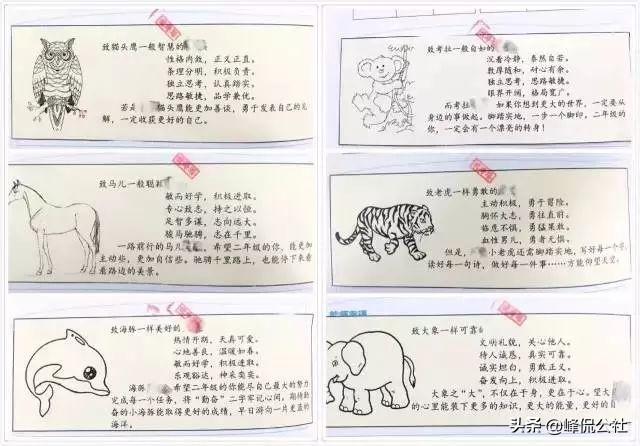 致猫头鹰一般智慧的
性格内敛，正义正直。
条理分明，积极负责。
独立思考，认真踏实。
思路敏捷，品学兼优。
若是 猫头鹰能更加善谈，勇于发表自己的见
解，一定收获更好的自己。
致考拉一般自如的
沉着冷静，泰然自若。
敦厚随和，耐心有余。
独立思考，思路敏捷。
眼界开阔，格局宽广。
而考拉 如果你想到更大的世界，一定要从
身边的事做起。脚踏实地，一步一个脚印，二年级的
你，一定会有一个漂亮的转身！
致马儿一般聪
敏而好学，积极进取。
专心致志，持之以恒。
足智多谋，志向远大。
骏马驰骋，志在千里。
一路前行的马儿 希望二年级的你，能更加
主动些，更加自信些。驰骋千里路上，也能停下来看
看路边的美景。
致老虎一样勇敢的
主动积极，勇于冒险。
胸怀大志，勇往直前。
临危不惧，勇猛果敢。
血性男儿，勇者无惧。
但是， 小老虎还需脚踏实地，写好每一个字，
读好每一句诗，做好每一件事……方能仰望天空。
致海豚一样美好的
热情开朗，天真可爱。
心地善良，温暖如春。
敏而好学，积极进取。
乐观豁达，神采奕奕。
海豚 希望二年级的你能尽自己最大的努力
完成每个任务，将“勤奋”二字牢记心间。期待勤
奋的小海豚能取得更好的成绩，早日游向一片更蓝的
海洋。
致大象一样可靠
文明礼貌，关心他人。
待人诚恳，真实可靠。
诚实坦白，勇敢正义。
奋发向上，积极进取。
大象之“大”，不仅在于身，更在于心。望大
的心里能装下更多的知识，更大的能量，更好的自
头条 @峰侃公社